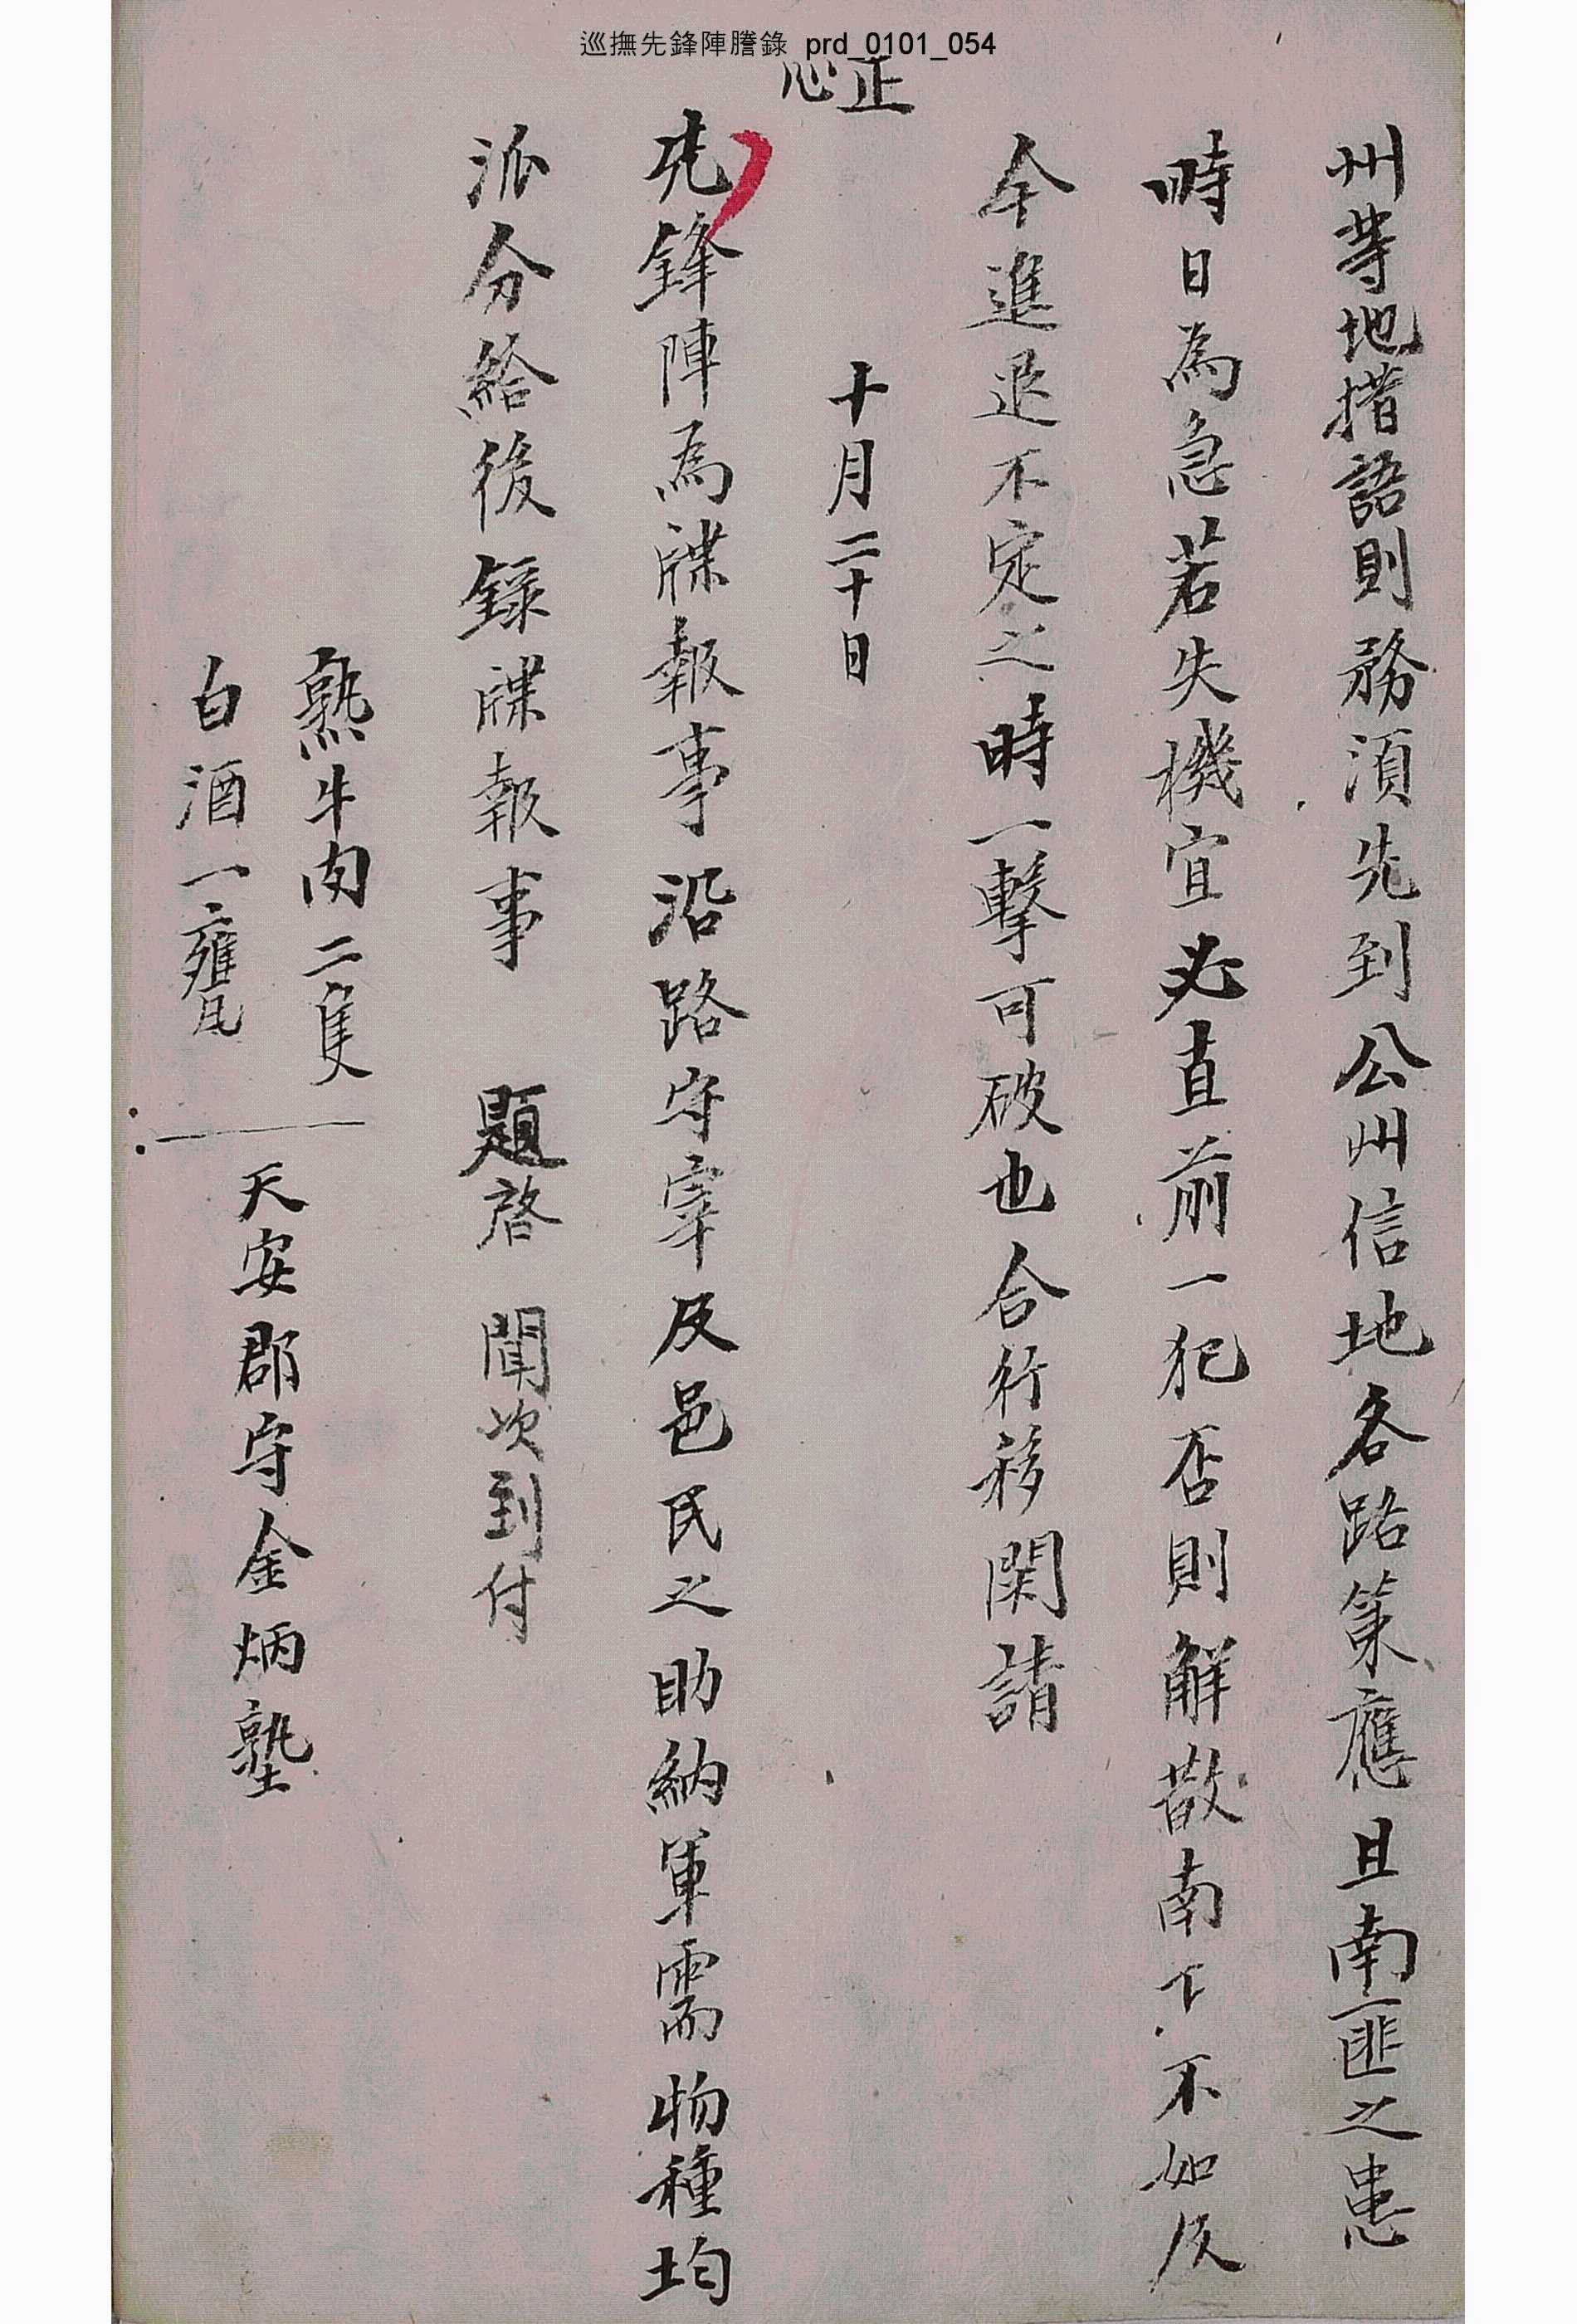 巡撫先鋒陣謄錄 prd_0101_054
州等地措語則務須先到公州信地各路策應且南匪之患
時日為急若失機宜必直前一犯否則解散南下不如及
今進退不定之時一擊可破也合行移関請
正心
十月二十日
先鋒陣為牒報事沿路守宰及邑民之助納軍需物種均
派分給後錄牒報事 題啓 聞次到付
熟牛肉二隻
白酒一甕
天安郡守金炳塾